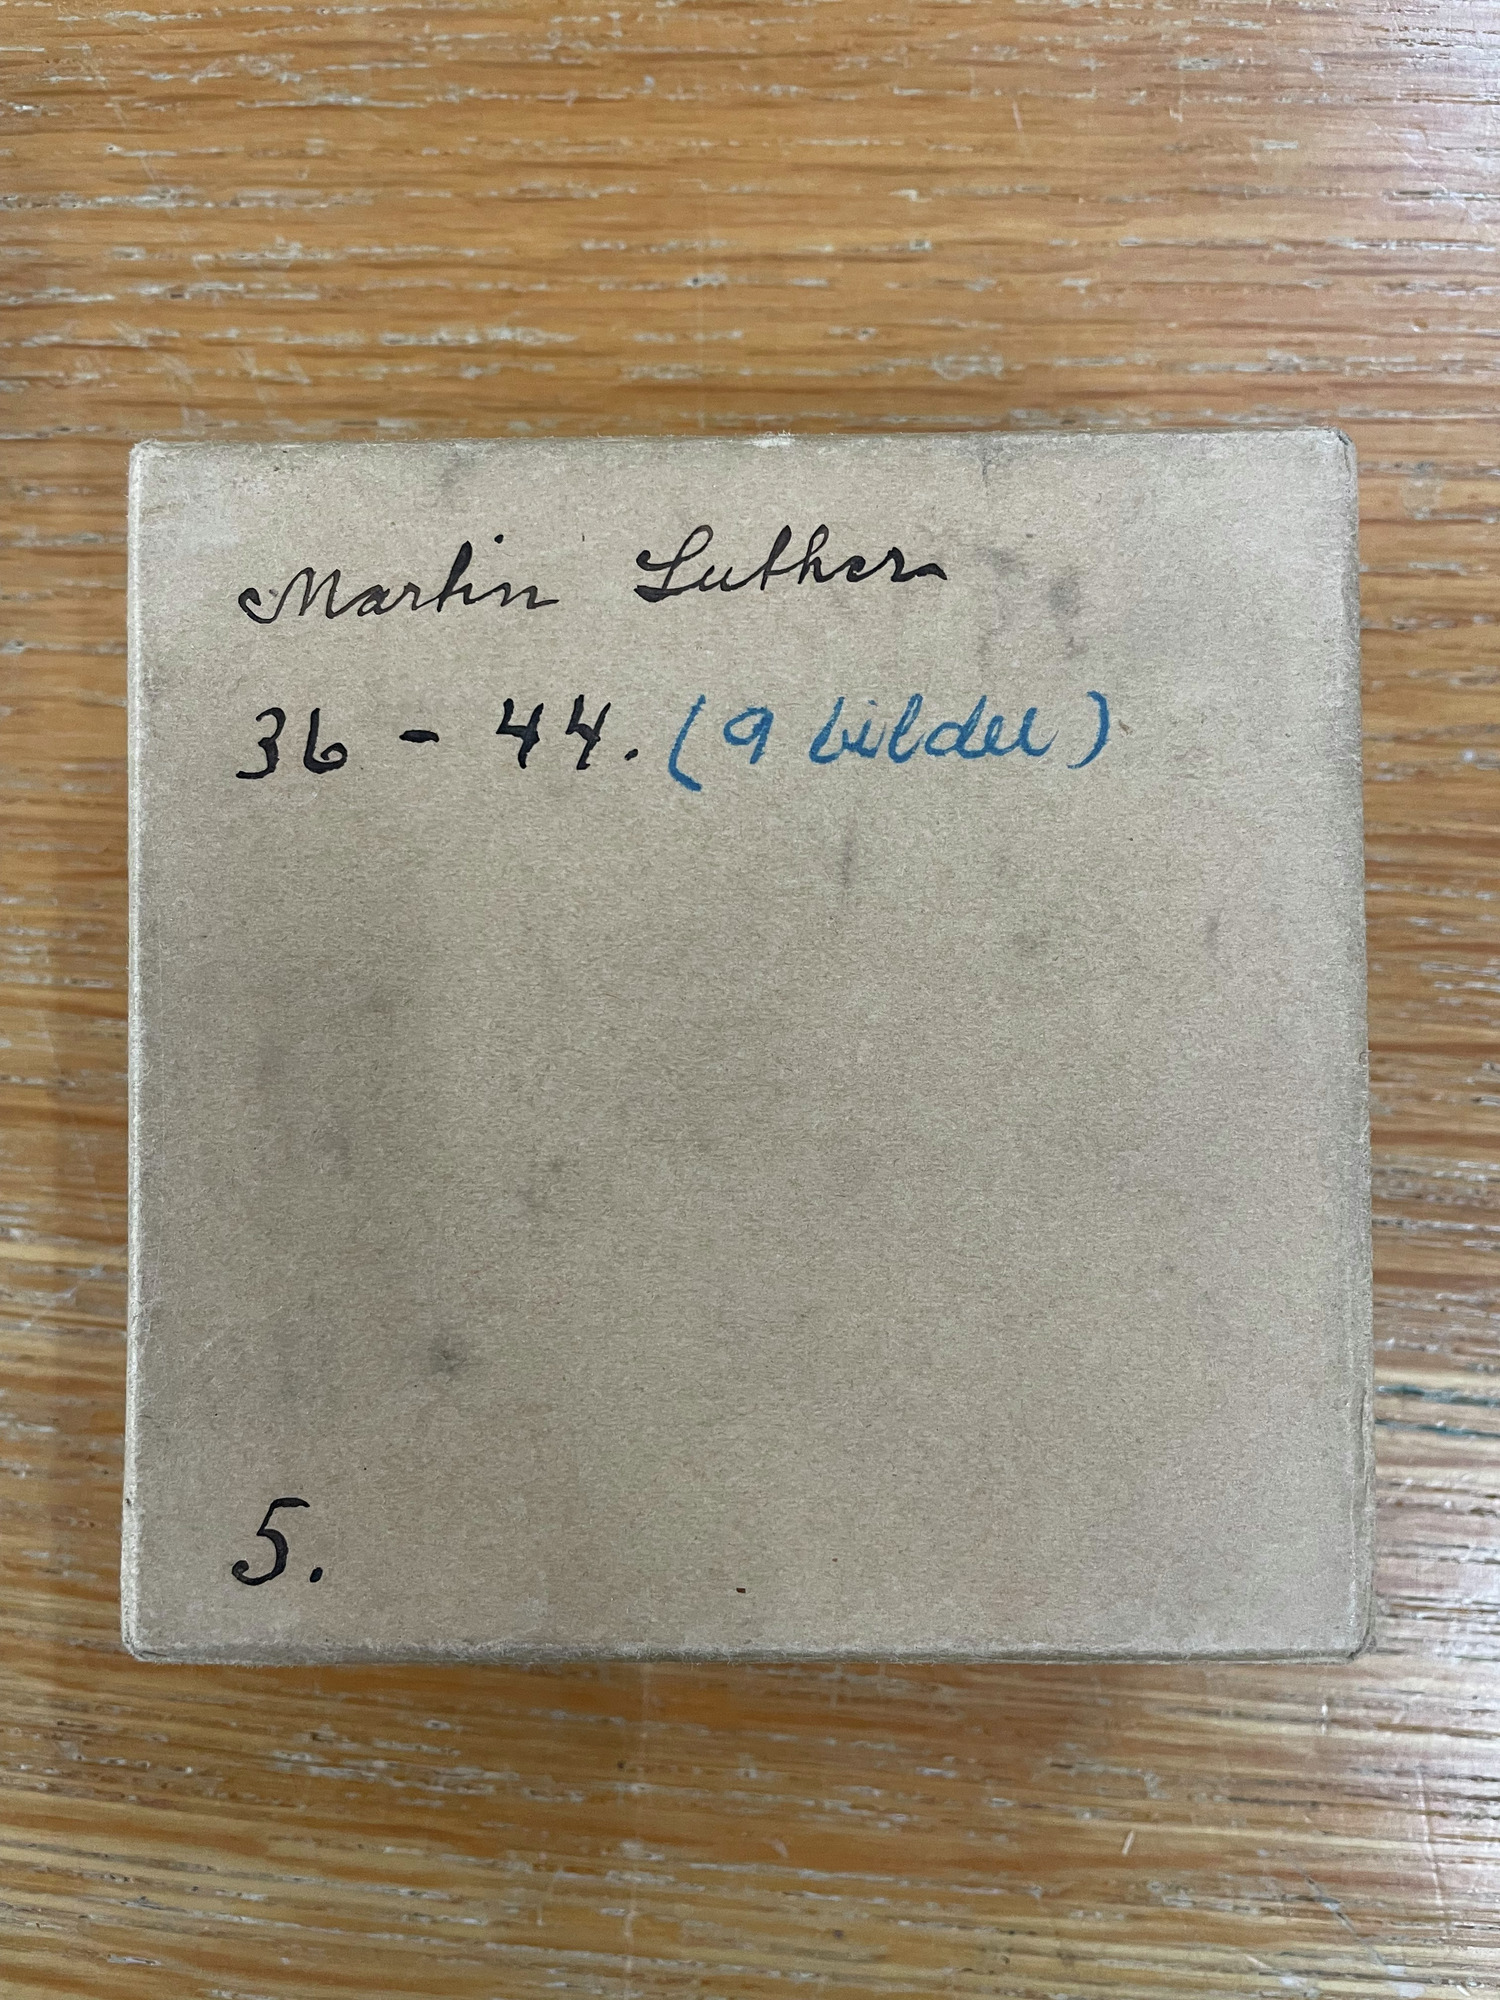 Martin Luther
36 - 44. (9 bilder)
5.